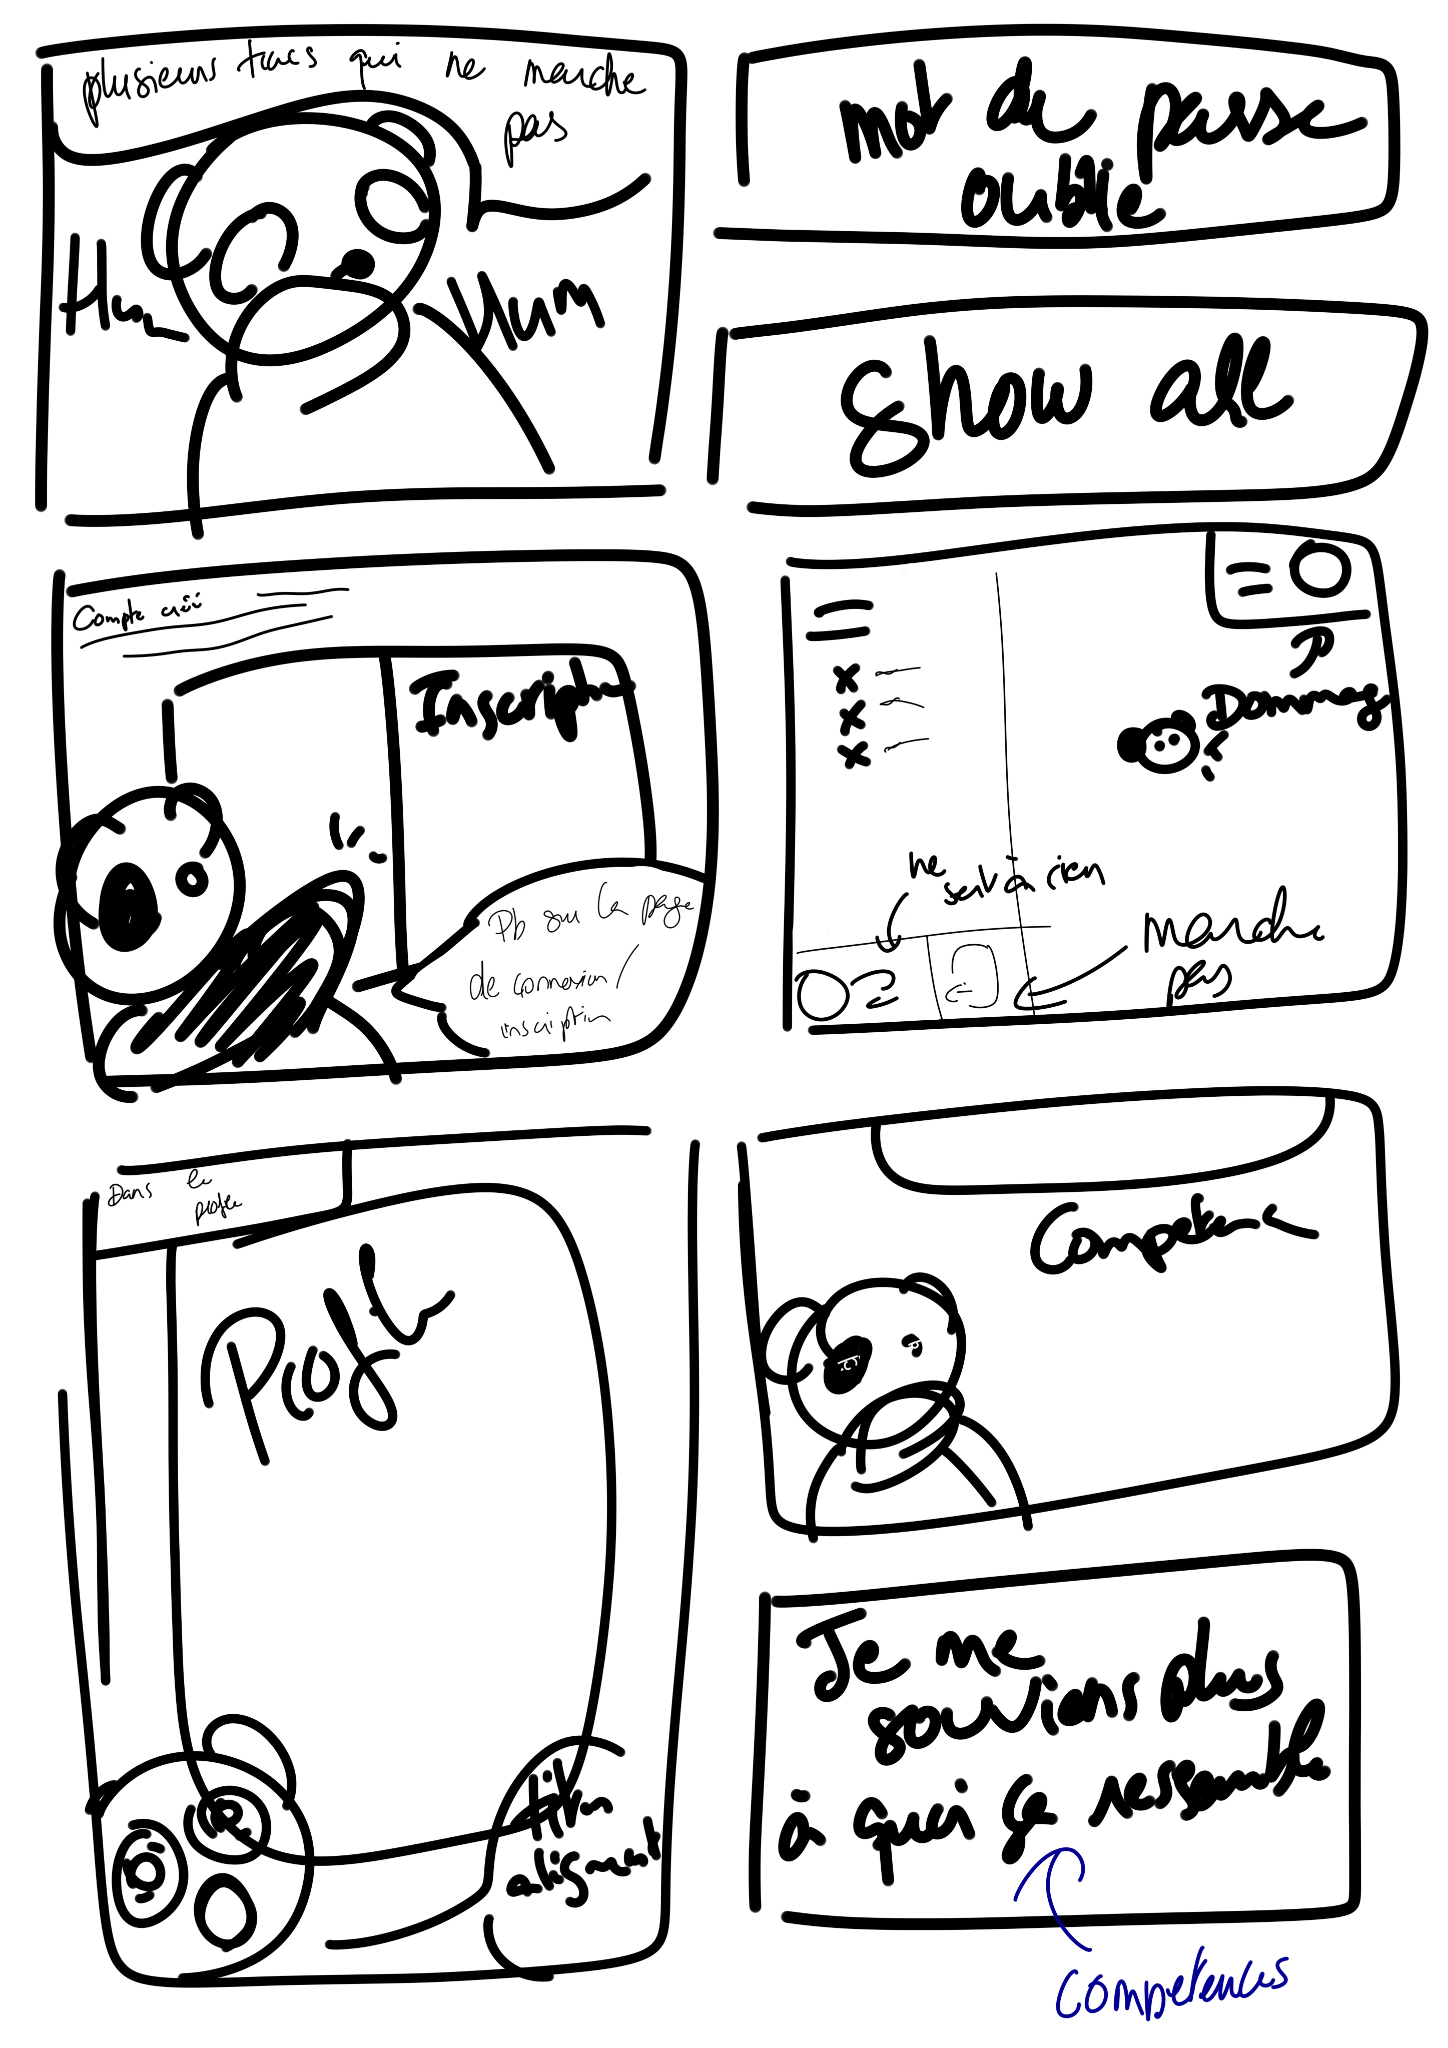 plusieurs trucs qui ne marche
pas
Hum
Hum
mot de passe
oublie
Show all
Compte créé
Inscription
Pb sur la page
de connexion/
inscription
Dommag
ne
sert à rien
marche
pas
Dans le
profile
Profil
alignment
Competen
Je me
souviens plus
à quoi ça ressemble
Competences